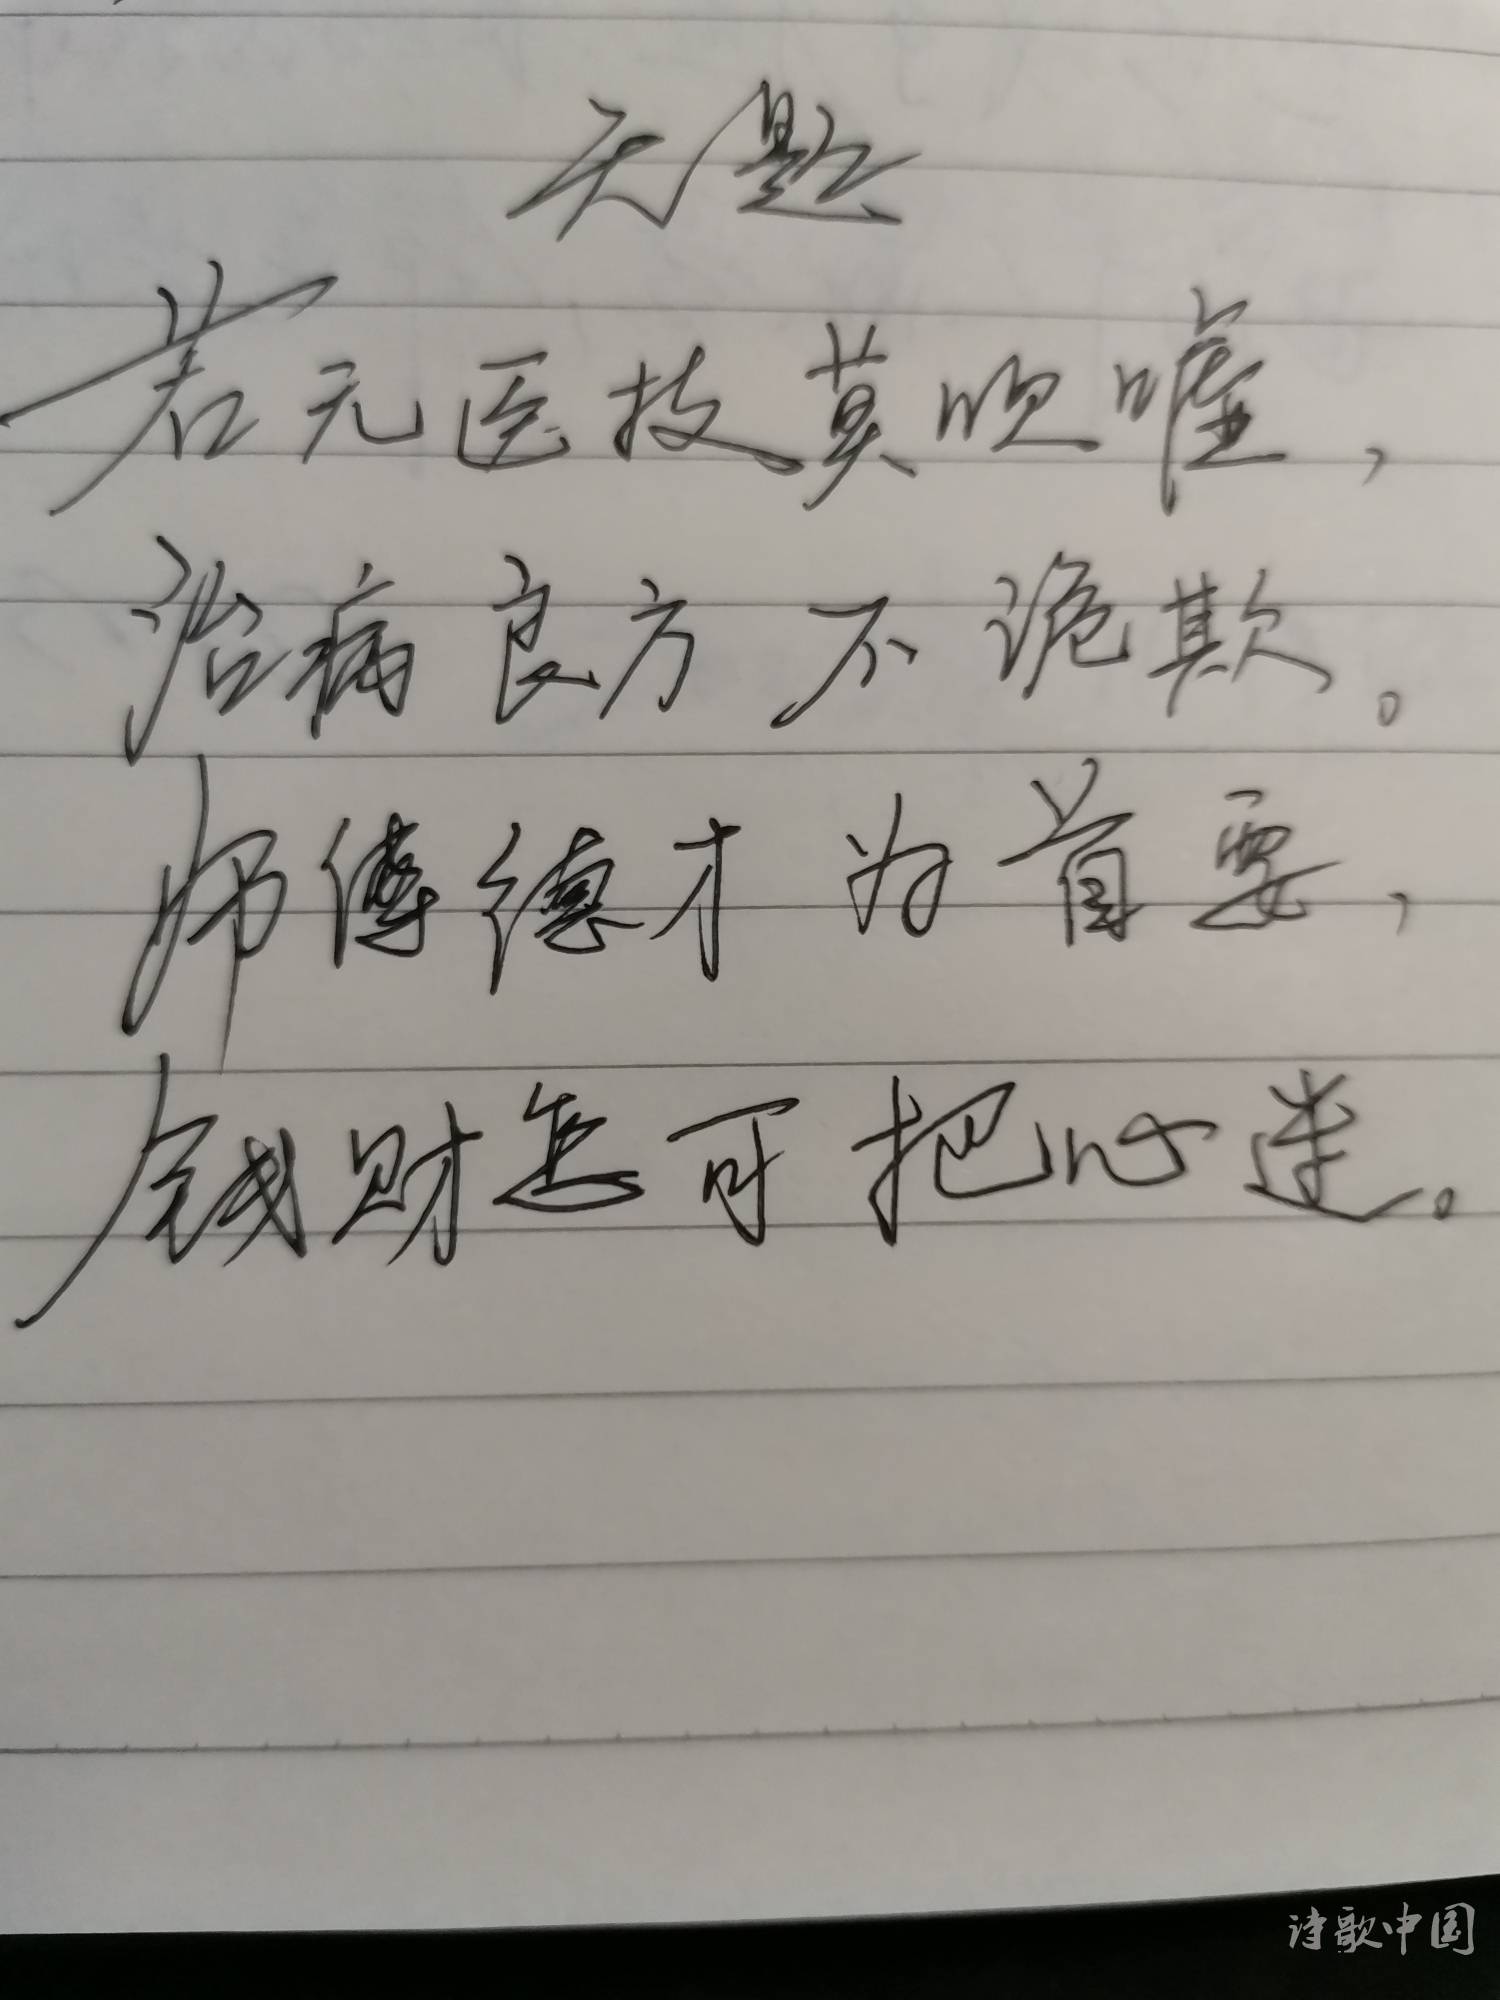 无题
若无医技莫吹嘘，
治病良方不诡欺。
师傅德才为首要，
钱财怎可把心迷。
诗歌中国